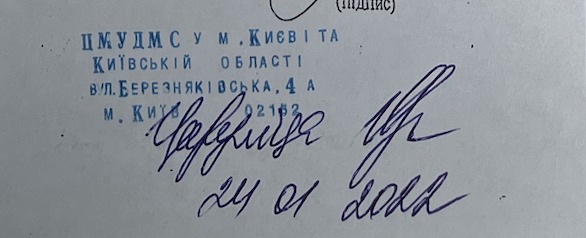 (підпис)
ЦМУДМС У М. КИЄВІ ТА
КИЇВСЬКІЙ ОБЛАСТІ
ВУЛ. БЕРЕЗНЯКІВСЬКА, 4 А
М. КИЇВ 02152
24 01 2022